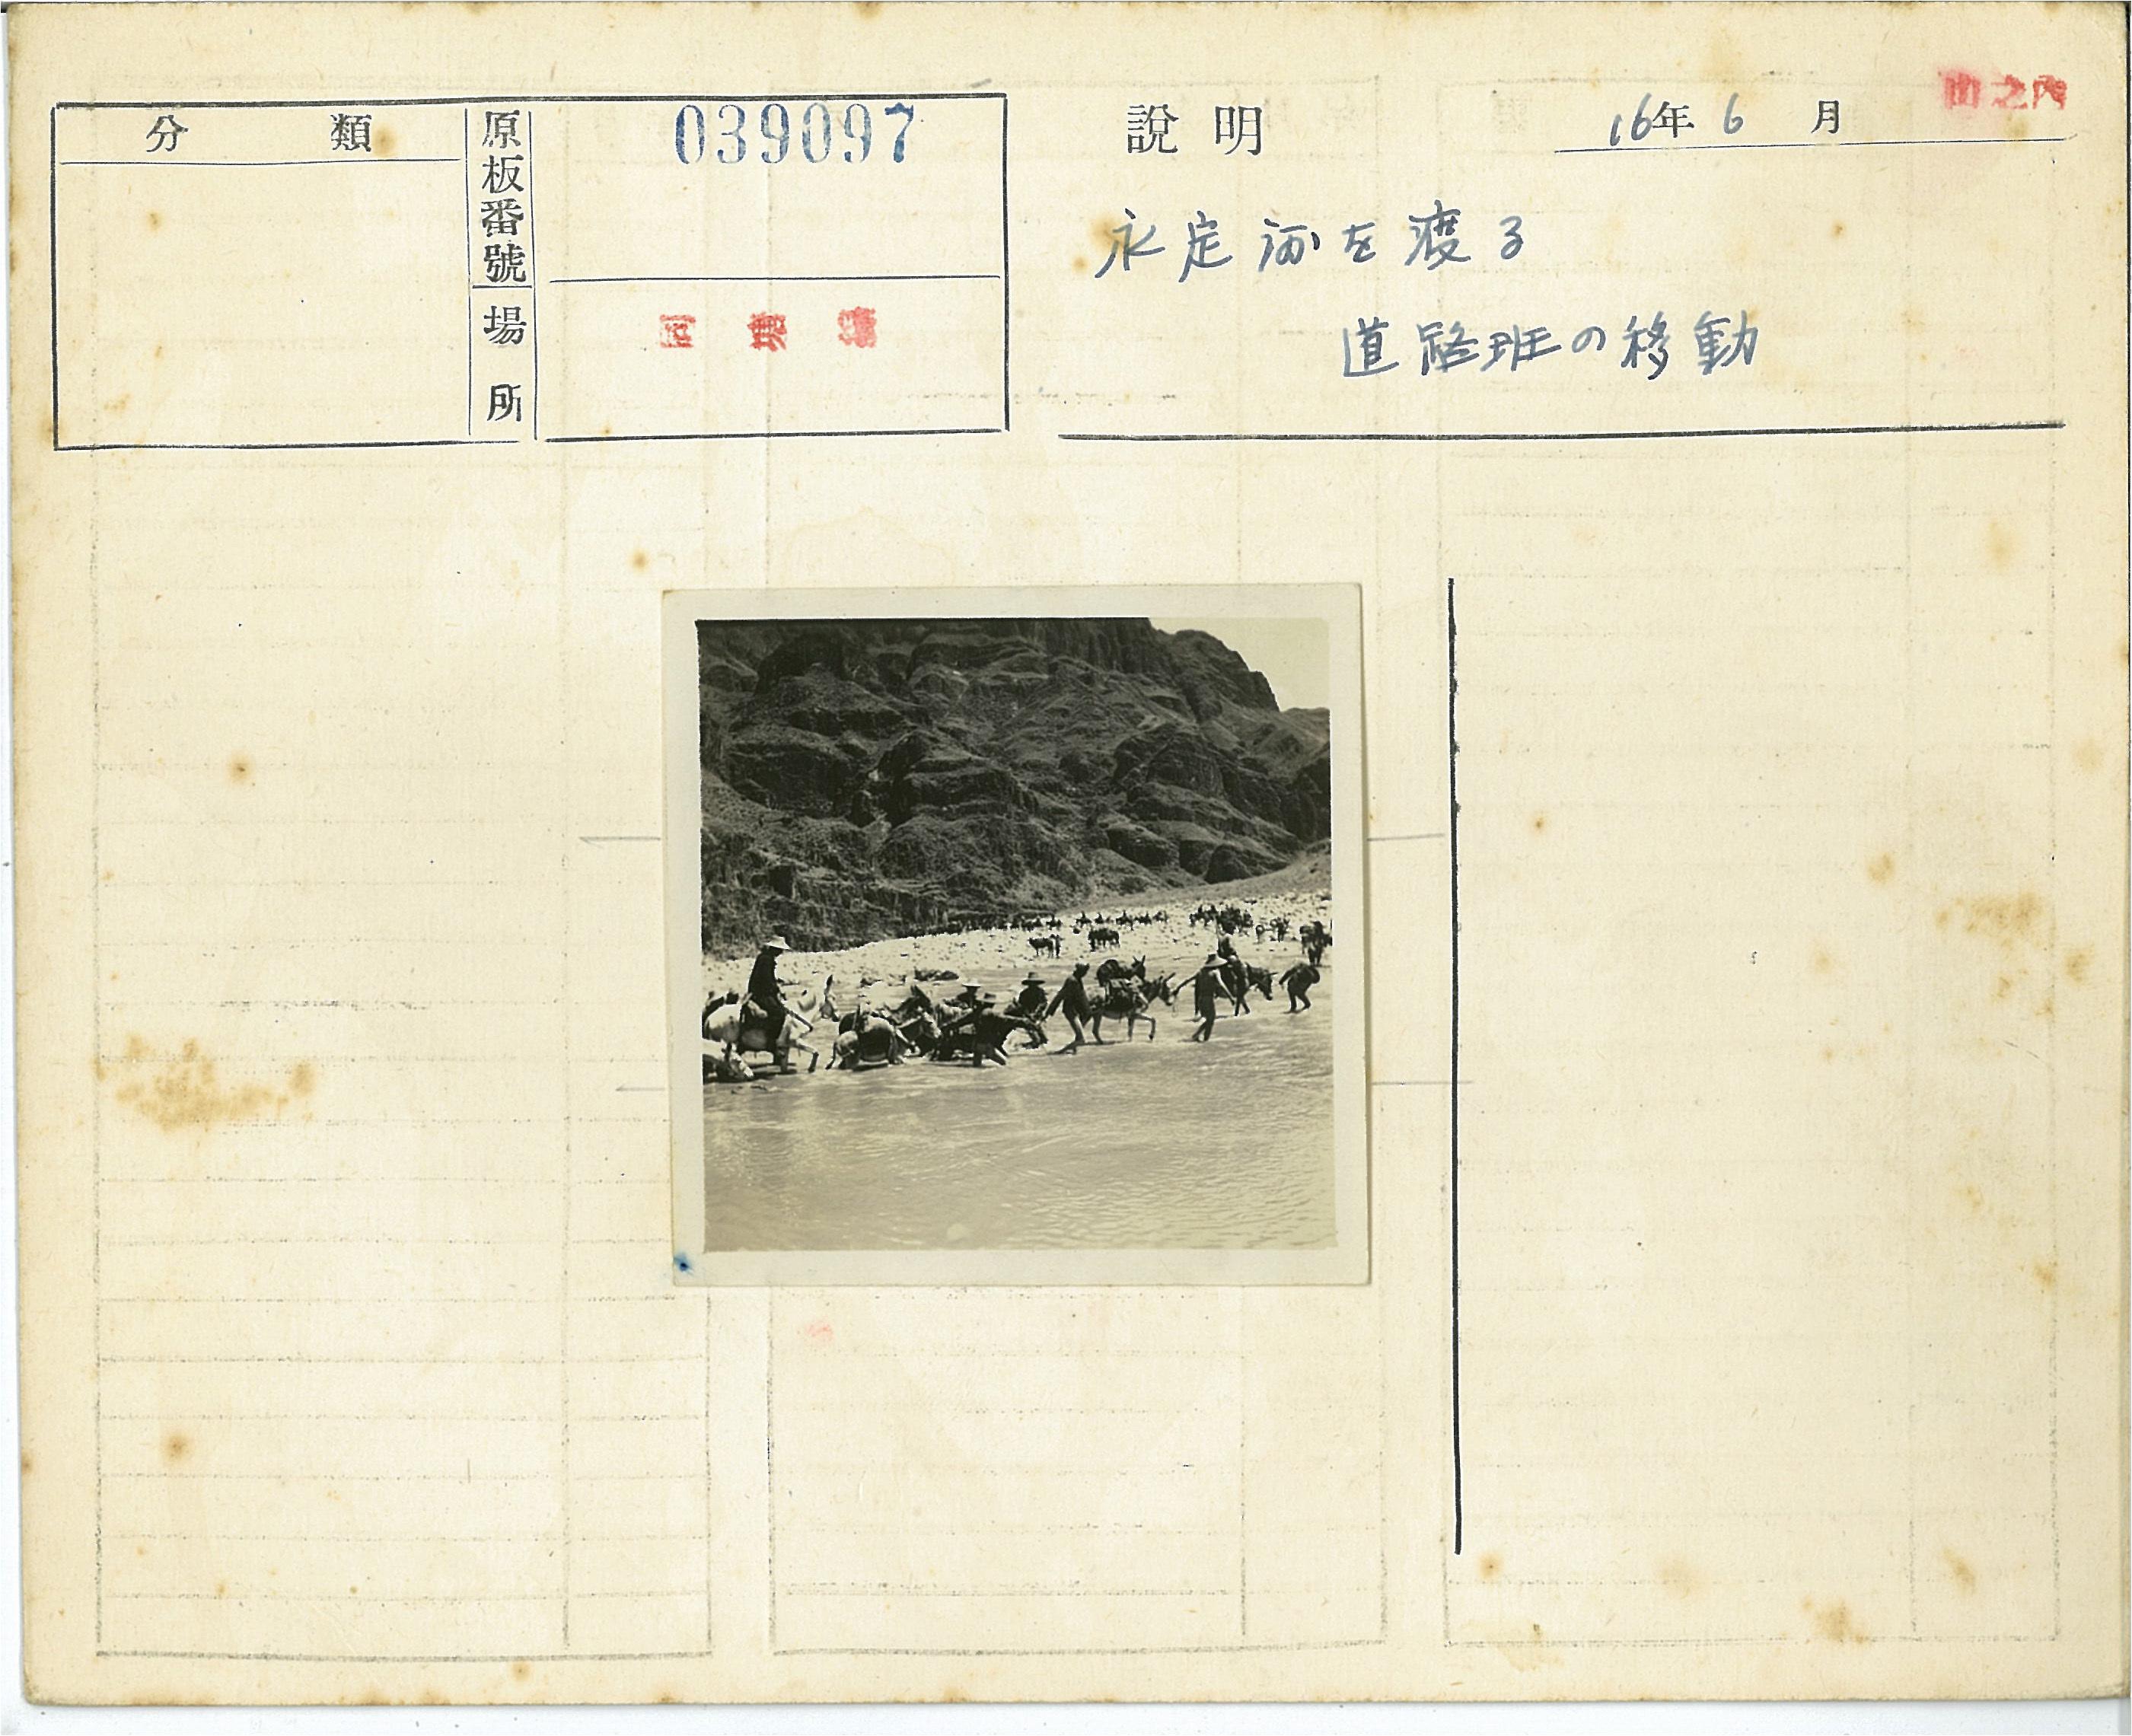 分類
原板番號
039097
場所
同塘線
說明
16年6月
山之内
永定河を渡る
道路班の移動